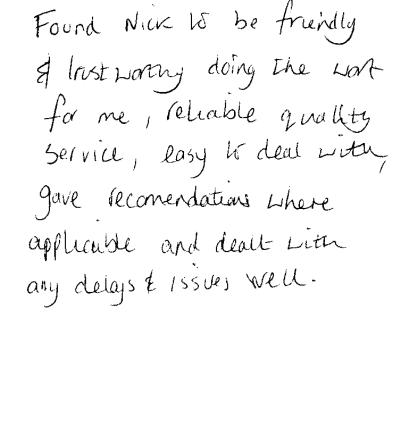 Found Nick to be friendly
& trustworthy doing the work
for me, reliable quality
service, easy to deal with,
gave recomendations where
applicable and dealt with
any delays & issues well.